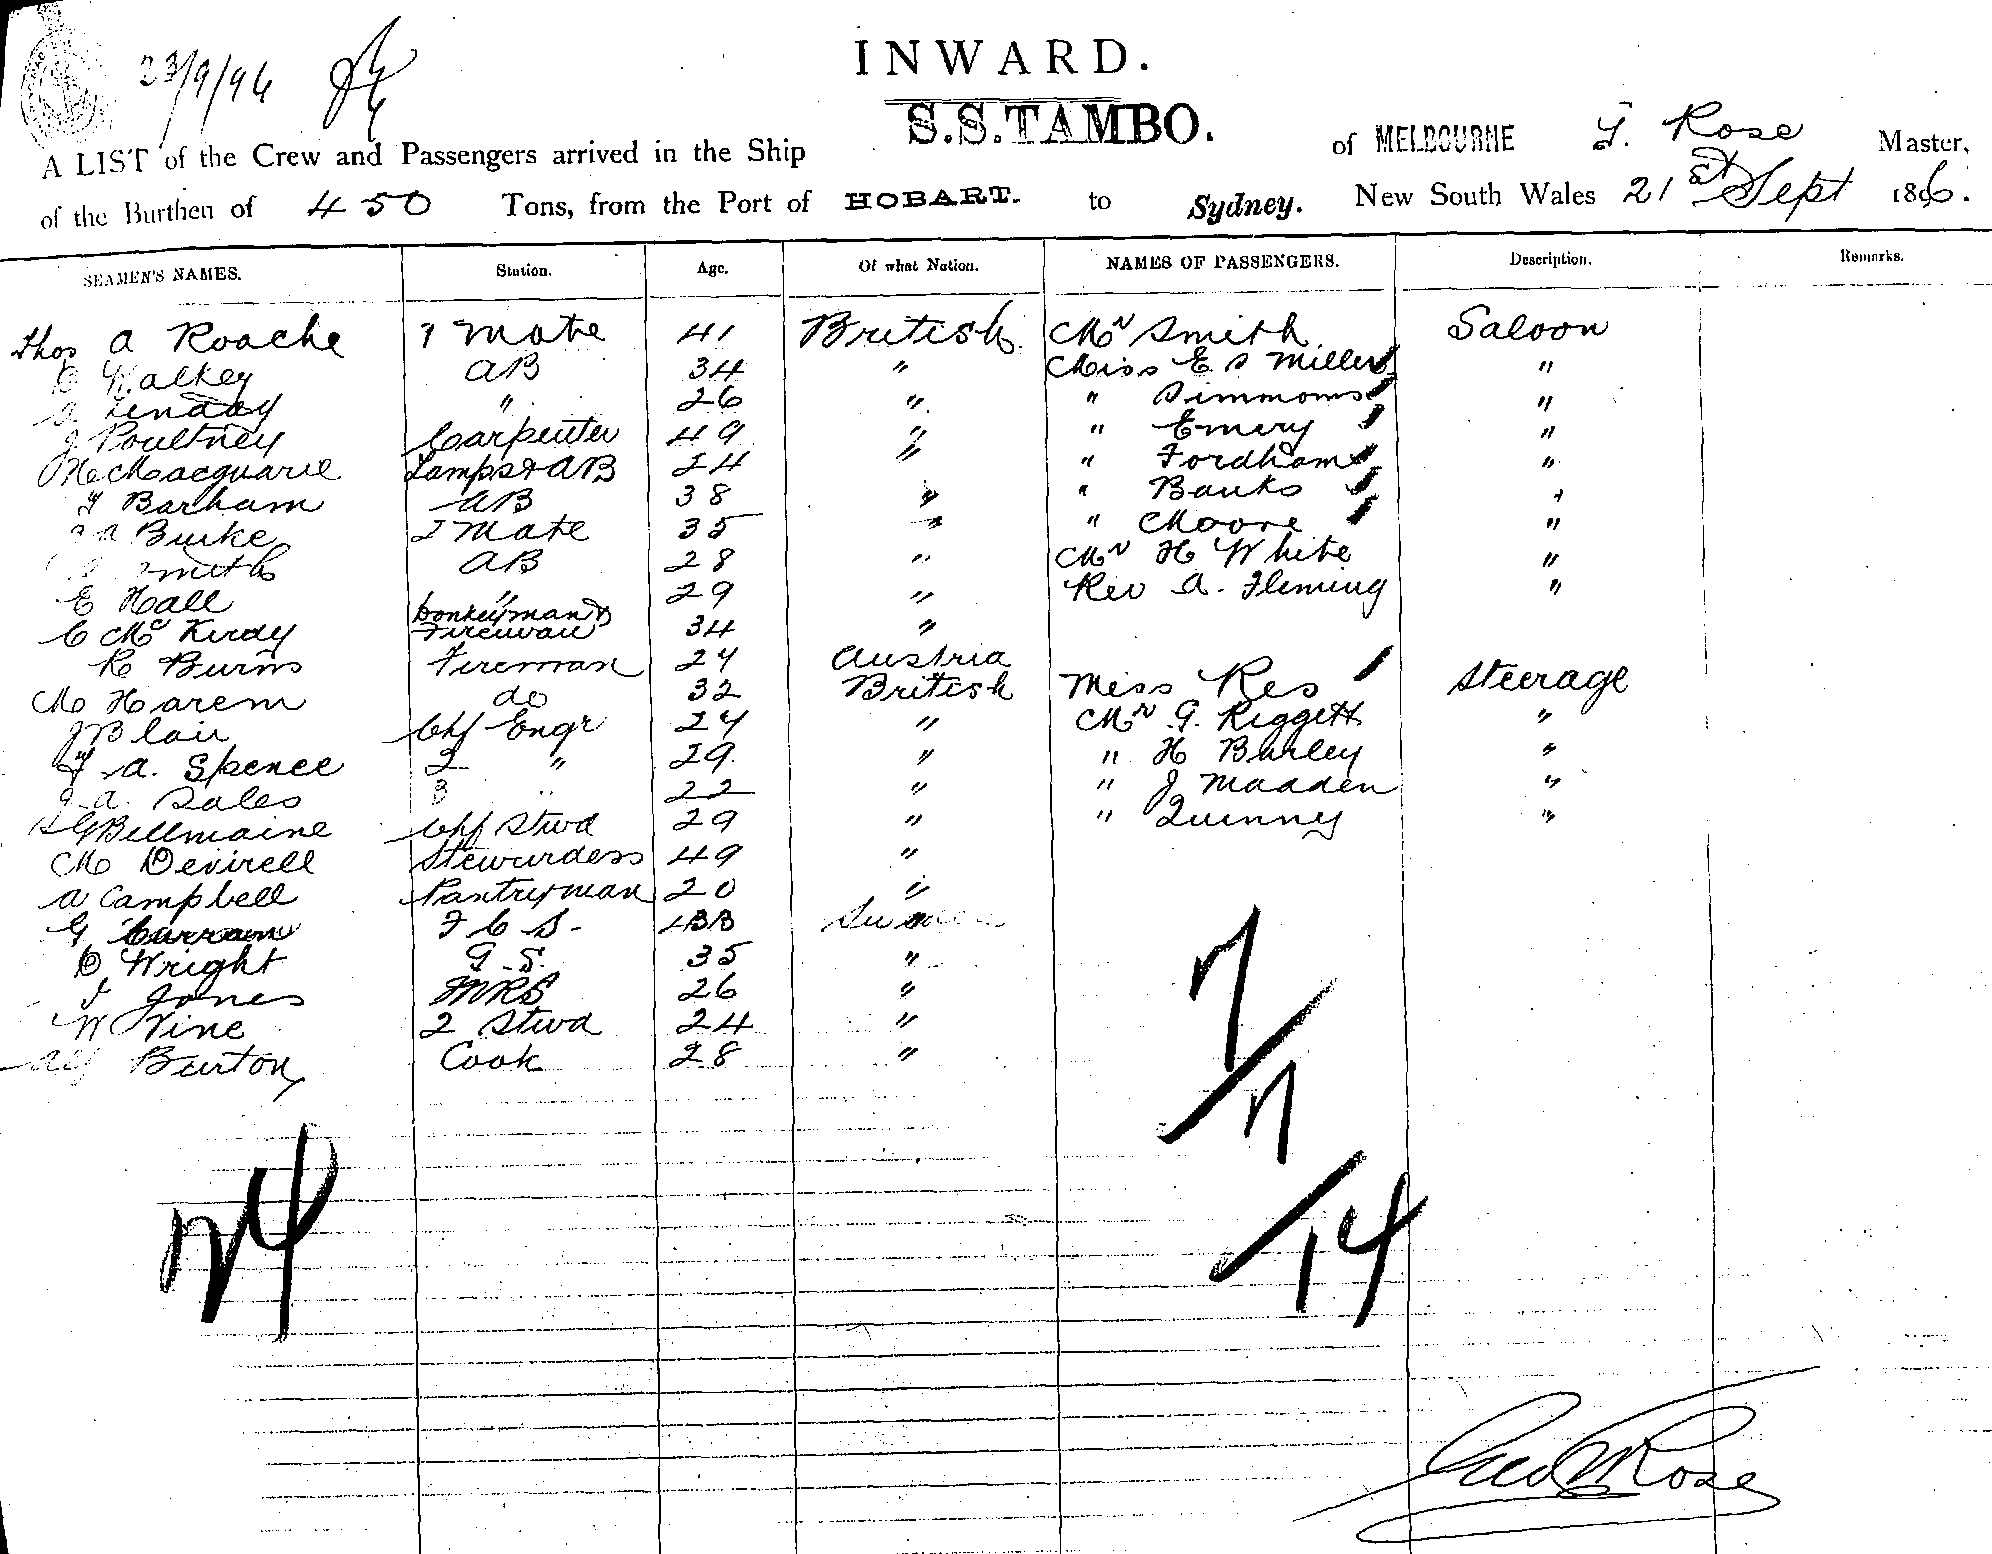 23/9/96
INWARD.
S.S.TAMBO.
of MELBOURNE Rose Master,
A LIST of the Crew and Passengers arrived in the Ship
of the Burthen of 450 Tons, from the Port of HOBART. to Sydney. New South Wales 21st Sept 1896.
SEAMEN'S NAMES. Station. Age. Of what Nation. NAMES OF PASSENGERS. Description. Remarks.
Thos A Roache 1 Mate 41 British Mr Smith Saloon
Walkey AB 34 " Miss E S Miller "
" 26 " " Simmons "
J Poultney Carpenter 49 " " Emery "
H Macquarie Lamps & AB 24 " " Fordham "
Barham AB 38 " " Banks "
A Burke 2 Mate 35 " " Moore "
Smith AB 28 " Mr H White "
E Hall " 29 " Rev A. Fleming "
C Mc Kirdy Donkeyman & Fireman 34 "
R Burns Fireman 24 Austria
M Harem do 32 British Miss Res Steerage
J Blair Chf Engr 24 " Mr G. Riggett "
A. Spence 2 " 29 " " H Burley "
A. Sales 3 " 22 " " J Madden "
Bellmaine Chf Stwd 29 " " Quinny "
M Devirell Stewardess 49 "
A Campbell Pantryman 20 "
G Curram F C S.
D Wright G.S. 35 "
Jones MRS 26 "
W Vine 2 Stwd 24 "
Alf Burton Cook 28 "
7/7/14
24
Geo Rose